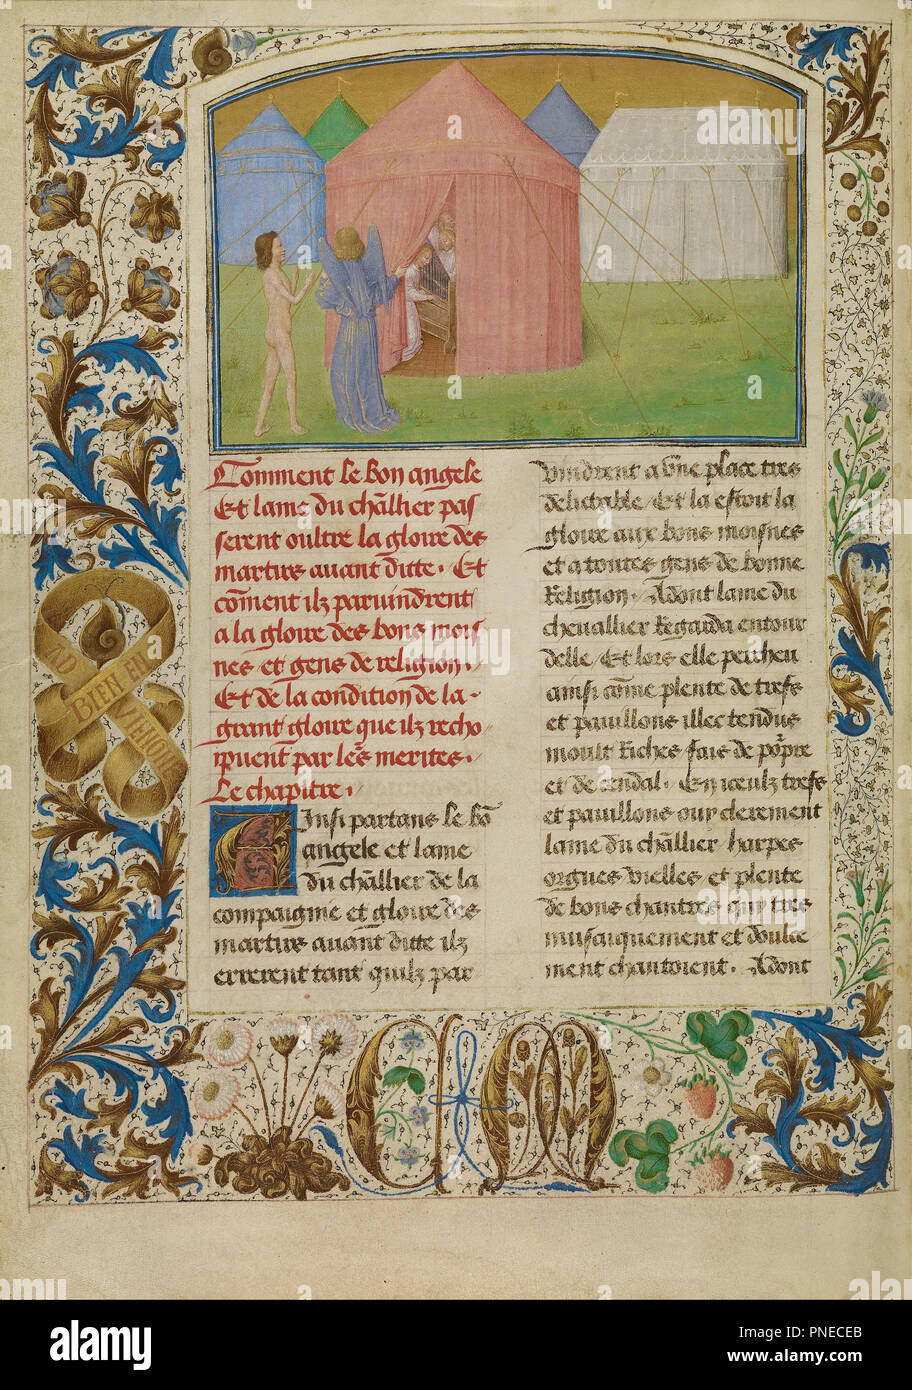 Comment le bon angele
Et lame du chãllier pas
serent oultre la gloire des
martirs auant ditte. Et
cõment ilz paruindrent
a la gloire des bons mois
nes et gens de religion.
Et de la condition de la
grant gloire que ilz recho
ipuent par les merites.
Le chapitre.
Ainsi partans le bõ
angele et lame
du chãllier de la
compaignie et gloire des
martirs auant ditte ilz
errerent tant quilz par
vindrent a vne place tres
delictable. Et la estoit la
gloire aux bons moisnes
et a toutes gens de bonne
Religion. Adont lame du
cheuallier Regarda entour
delle. Et lors elle percheu
ainsi cõme plente de trefs
et pauillons illec tendus
moult Riches fais de põpre
et de cendal. En iceulz trefs
et pauillons ouy clerement
lame du chãllier harpes
orgues vielles et plente
de bons chantres quy tres
musicquement et doulce
ment chantoient. Adont
BIEN EN
VIENE
C M
alamy
alamy stock photo
Image ID: PNECEB
www.alamy.com